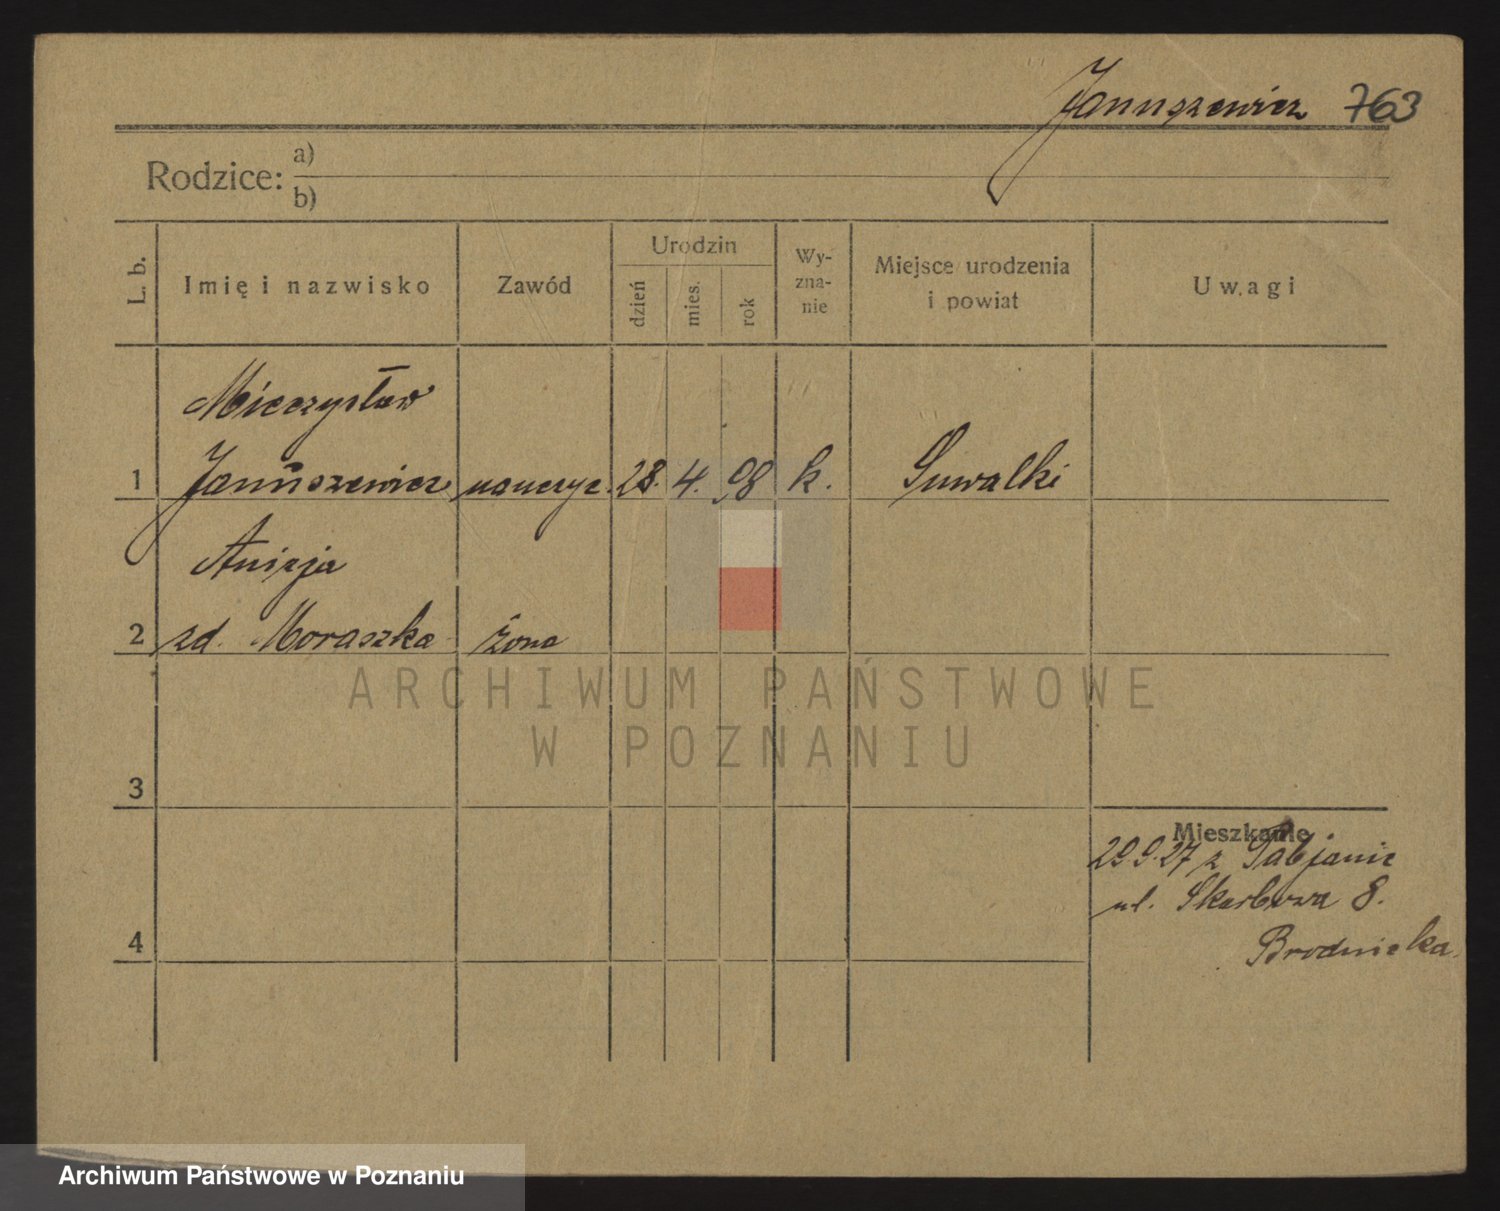 Januszewicz 763
Rodzice: a)
b)
L. b.
Imię i nazwisko
Zawód
Urodzin
dzień
mies.
rok
Wy-
zna-
nie
Miejsce urodzenia
i powiat
Uwagi
Mieczysław
1 Januszewicz nauczyc. 28. 4. 98 k. Suwalki
Anizja
2 zd. Moraszka żona
ARCHIWUM PAŃSTWOWE
W POZNANIU
3
Mieszkanie
29.9.27 z Pabjanic
ul. Skarbowa 8.
4
Brodnicka
Archiwum Państwowe w Poznaniu